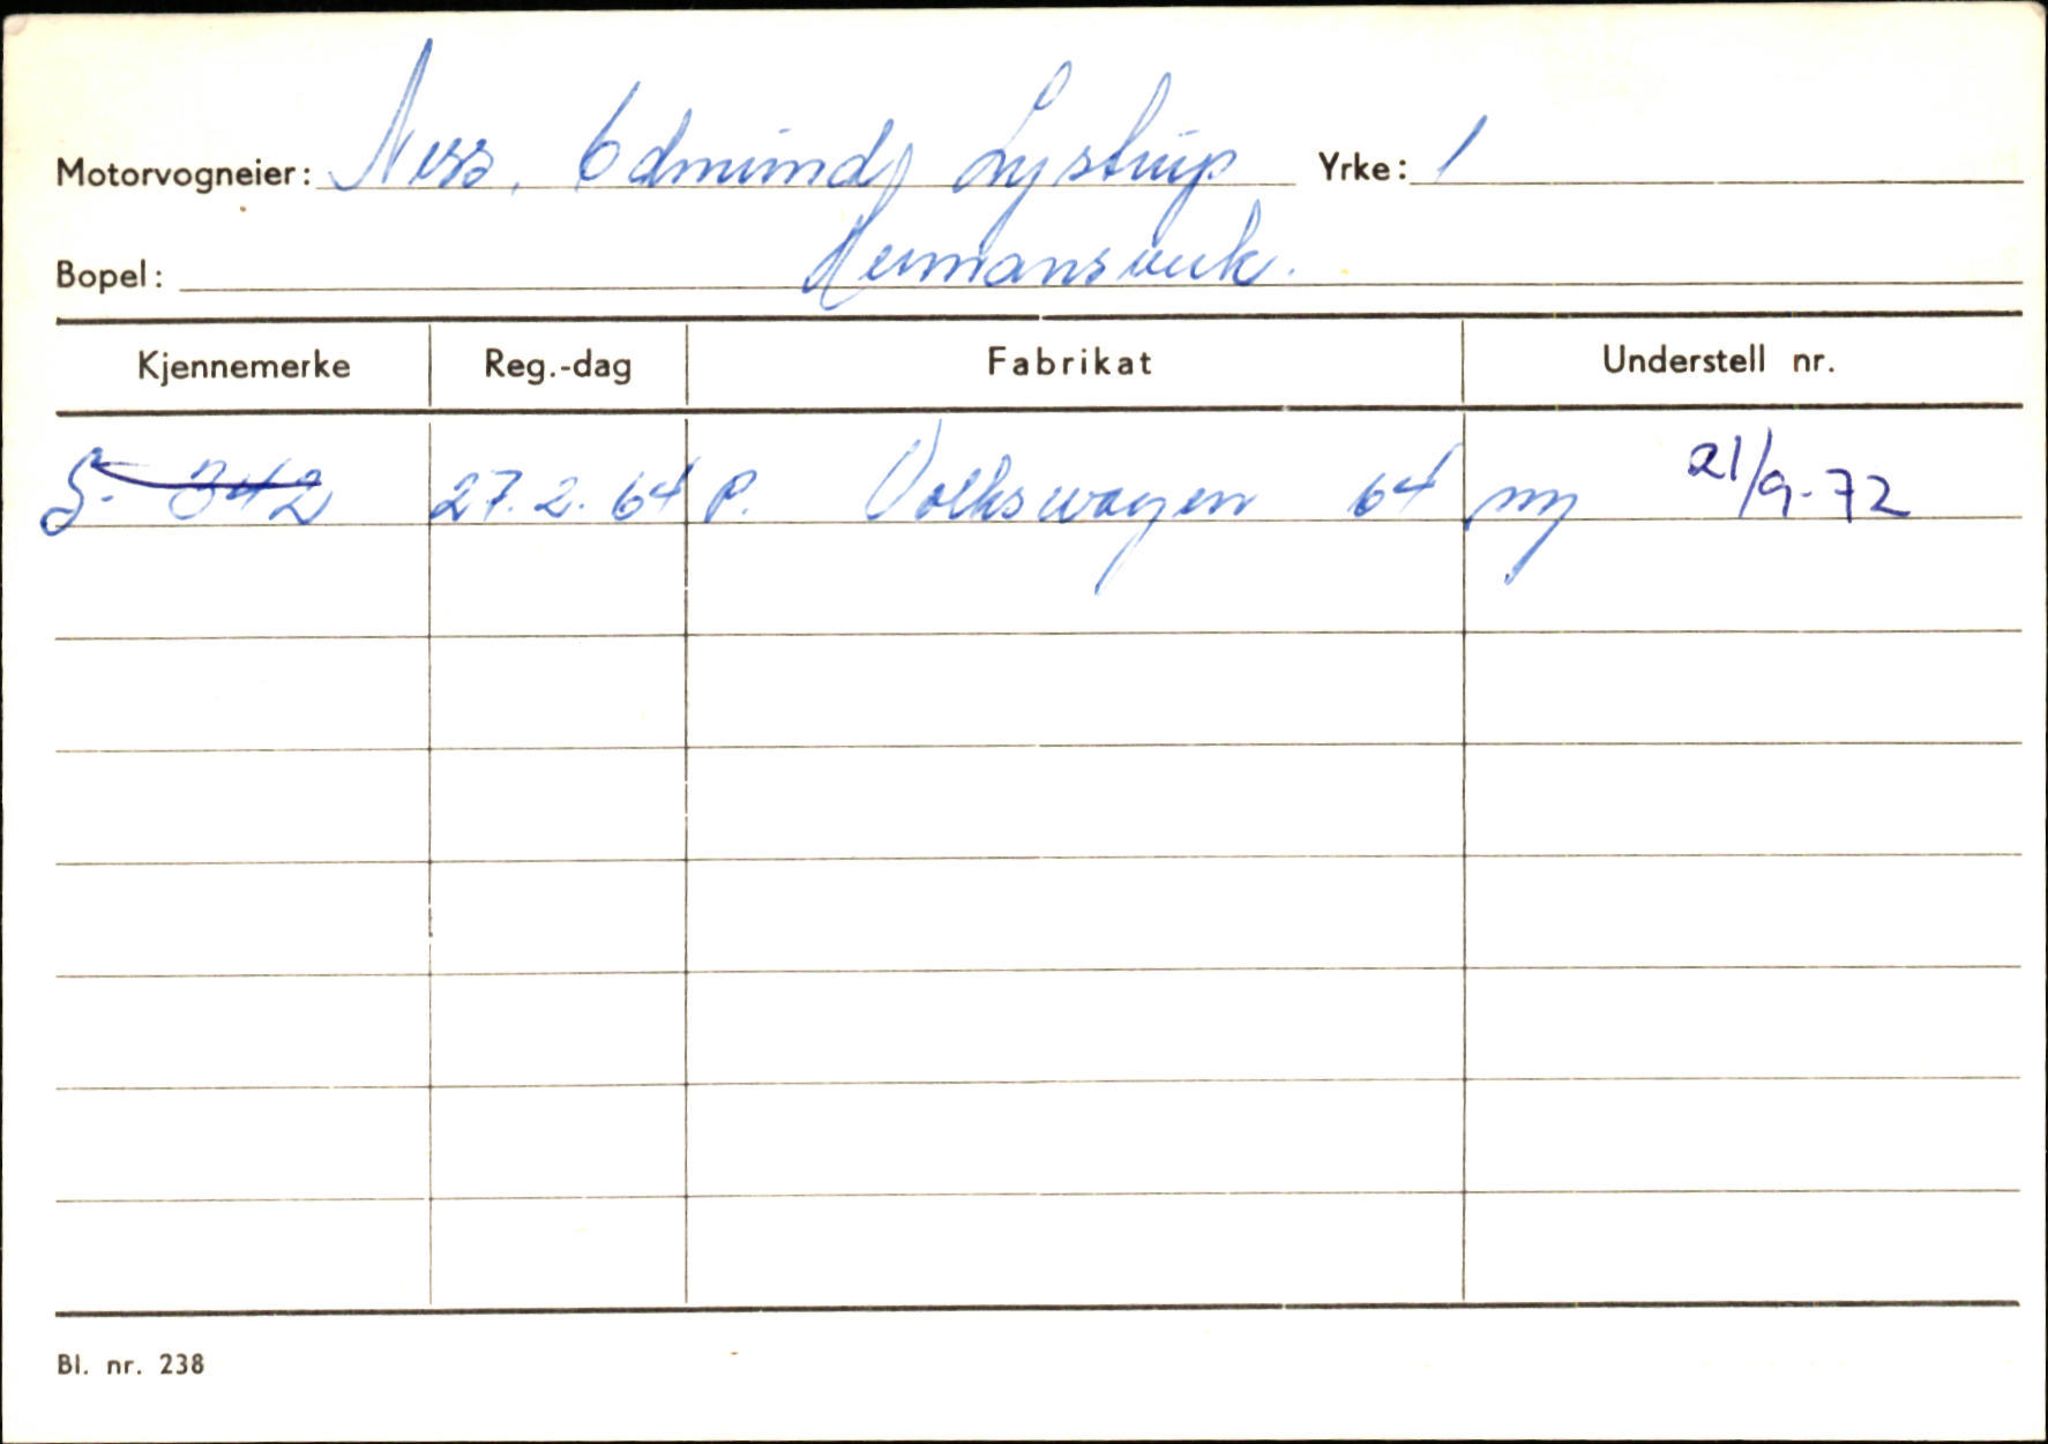 Motorvogneier: Ness, Edmund Lystrup Yrke: 1
Bopel: Hermansverk.
Kjennemerke Reg.-dag Fabrikat Understell nr.
S- 342 27.2.64 P. Volkswagen 64 ny 21/9-72
Bl. nr. 238